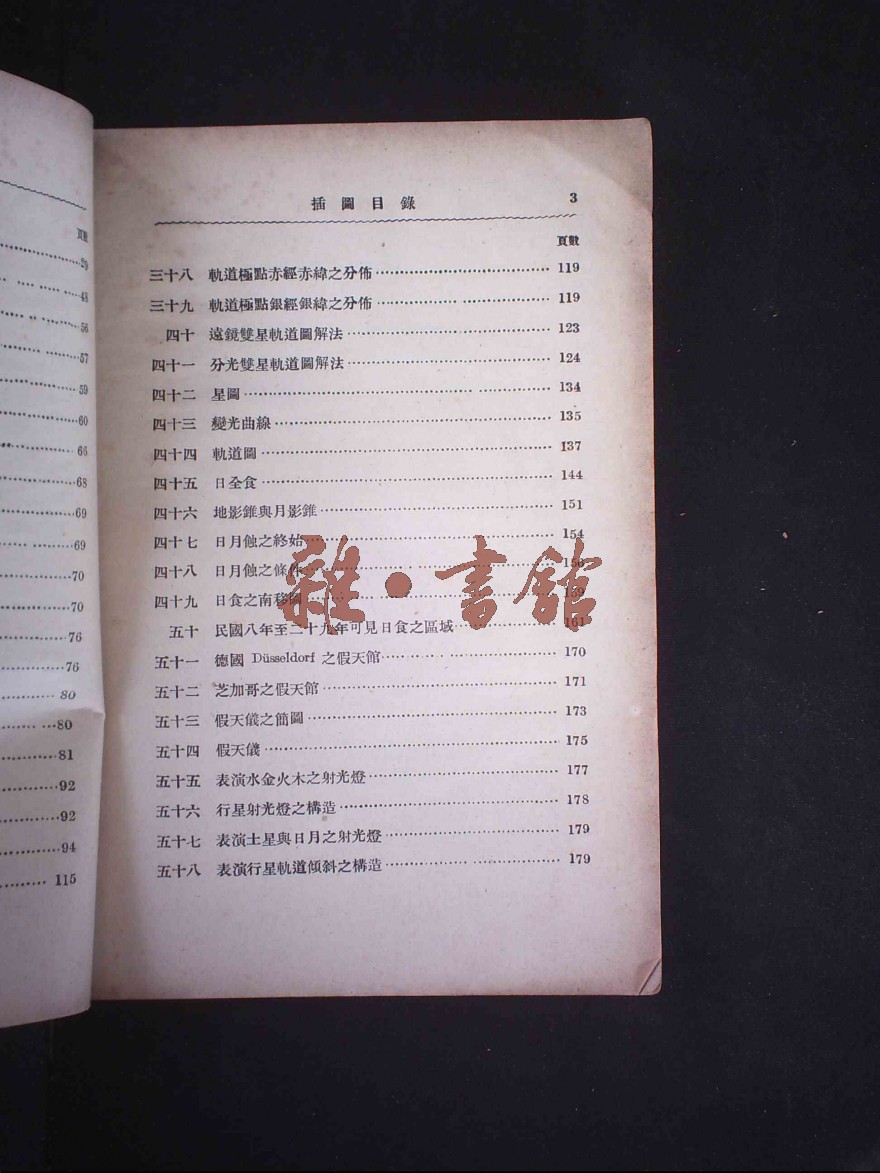 頁數
29
48
56
57
59
60
66
68
69
69
70
70
76
76
80
80
81
92
92
94
115
插圖目錄 3
頁數
三十八 軌道極點赤經赤緯之分佈 119
三十九 軌道極點銀經銀緯之分佈 119
四十 遠鏡雙星軌道圖解法 123
四十一 分光雙星軌道圖解法 124
四十二 星圖 134
四十三 變光曲線 135
四十四 軌道圖 137
四十五 日全食 144
四十六 地影錐與月影錐 151
四十七 日月蝕之終始 154
四十八 日月蝕之條件 156
四十九 日食之南移圖 159
五十 民國八年至二十九年可見日食之區域 161
五十一 德國 Düsseldorf 之假天館 170
五十二 芝加哥之假天館 171
五十三 假天儀之簡圖 173
五十四 假天儀 175
五十五 表演水金火木之射光燈 177
五十六 行星射光燈之構造 178
五十七 表演土星與日月之射光燈 179
五十八 表演行星軌道傾斜之構造 179
雜·書館